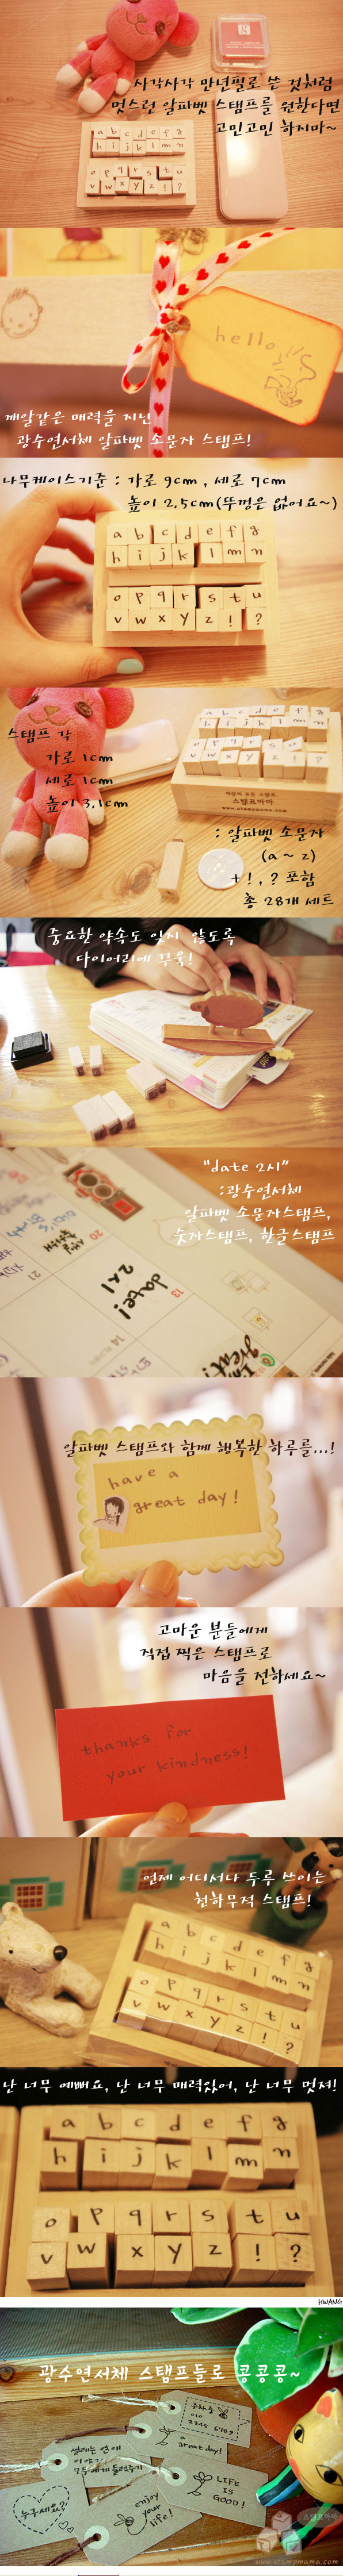 사각사각 만년필로 쓴 것처럼
멋스런 알파벳 스탬프를 원한다면
고민고민 하지마~
a b c d e f g
h i j k l m n
o p q r s t u
v w x y z ! ?
hello
깨알같은 매력을 지닌
광수연서체 알파벳 소문자 스탬프!
나무케이스기준 : 가로 9cm, 세로 7cm
높이 2.5cm(뚜껑은 없어요~)
a b c d e f g
h i j k l m n
o p q r s t u
v w x y z ! ?
스탬프 각
가로 1cm
세로 1cm
높이 3.1cm
a b c d e f g
h i j k l m n
o p q r s t u
v w x y z ! ?
세상의 모든 스탬프,
스탬프마마
www.stampmama.com
: 알파벳 소문자
(a ~ z)
+ ! , ? 포함
총 28개 세트
중요한 약속도 잊지 않도록
다이어리에 꾸욱!
"date 2시"
:광수연서체
알파벳 소문자스탬프,
숫자스탬프, 한글스탬프
date!
2시
13
20
21
14
great!
알파벳 스탬프와 함께 행복한 하루를...!
have a
great day!
고마운 분들에게
직접 찍은 스탬프로
마음을 전하세요~
thanks for
your kindness!
언제 어디서나 두루 쓰이는
천하무적 스탬프!
a b c d e f g
h i j k l m n
o p q r s t u
v w x y z ! ?
난 너무 예뻐요, 난 너무 매력있어, 난 너무 멋져!
a b c d e f g
h i j k l m n
o p q r s t u
v w x y z ! ?
HWANG
광수연서체 스탬프들로 콩콩콩~
010
2345 6789
a
great day!
설레는 연애
이야기
모두에게 들려주기
누구세요?
enjoy
your
life!
LIFE
IS
GOOD!
스탬프마마
www.stampmama.com